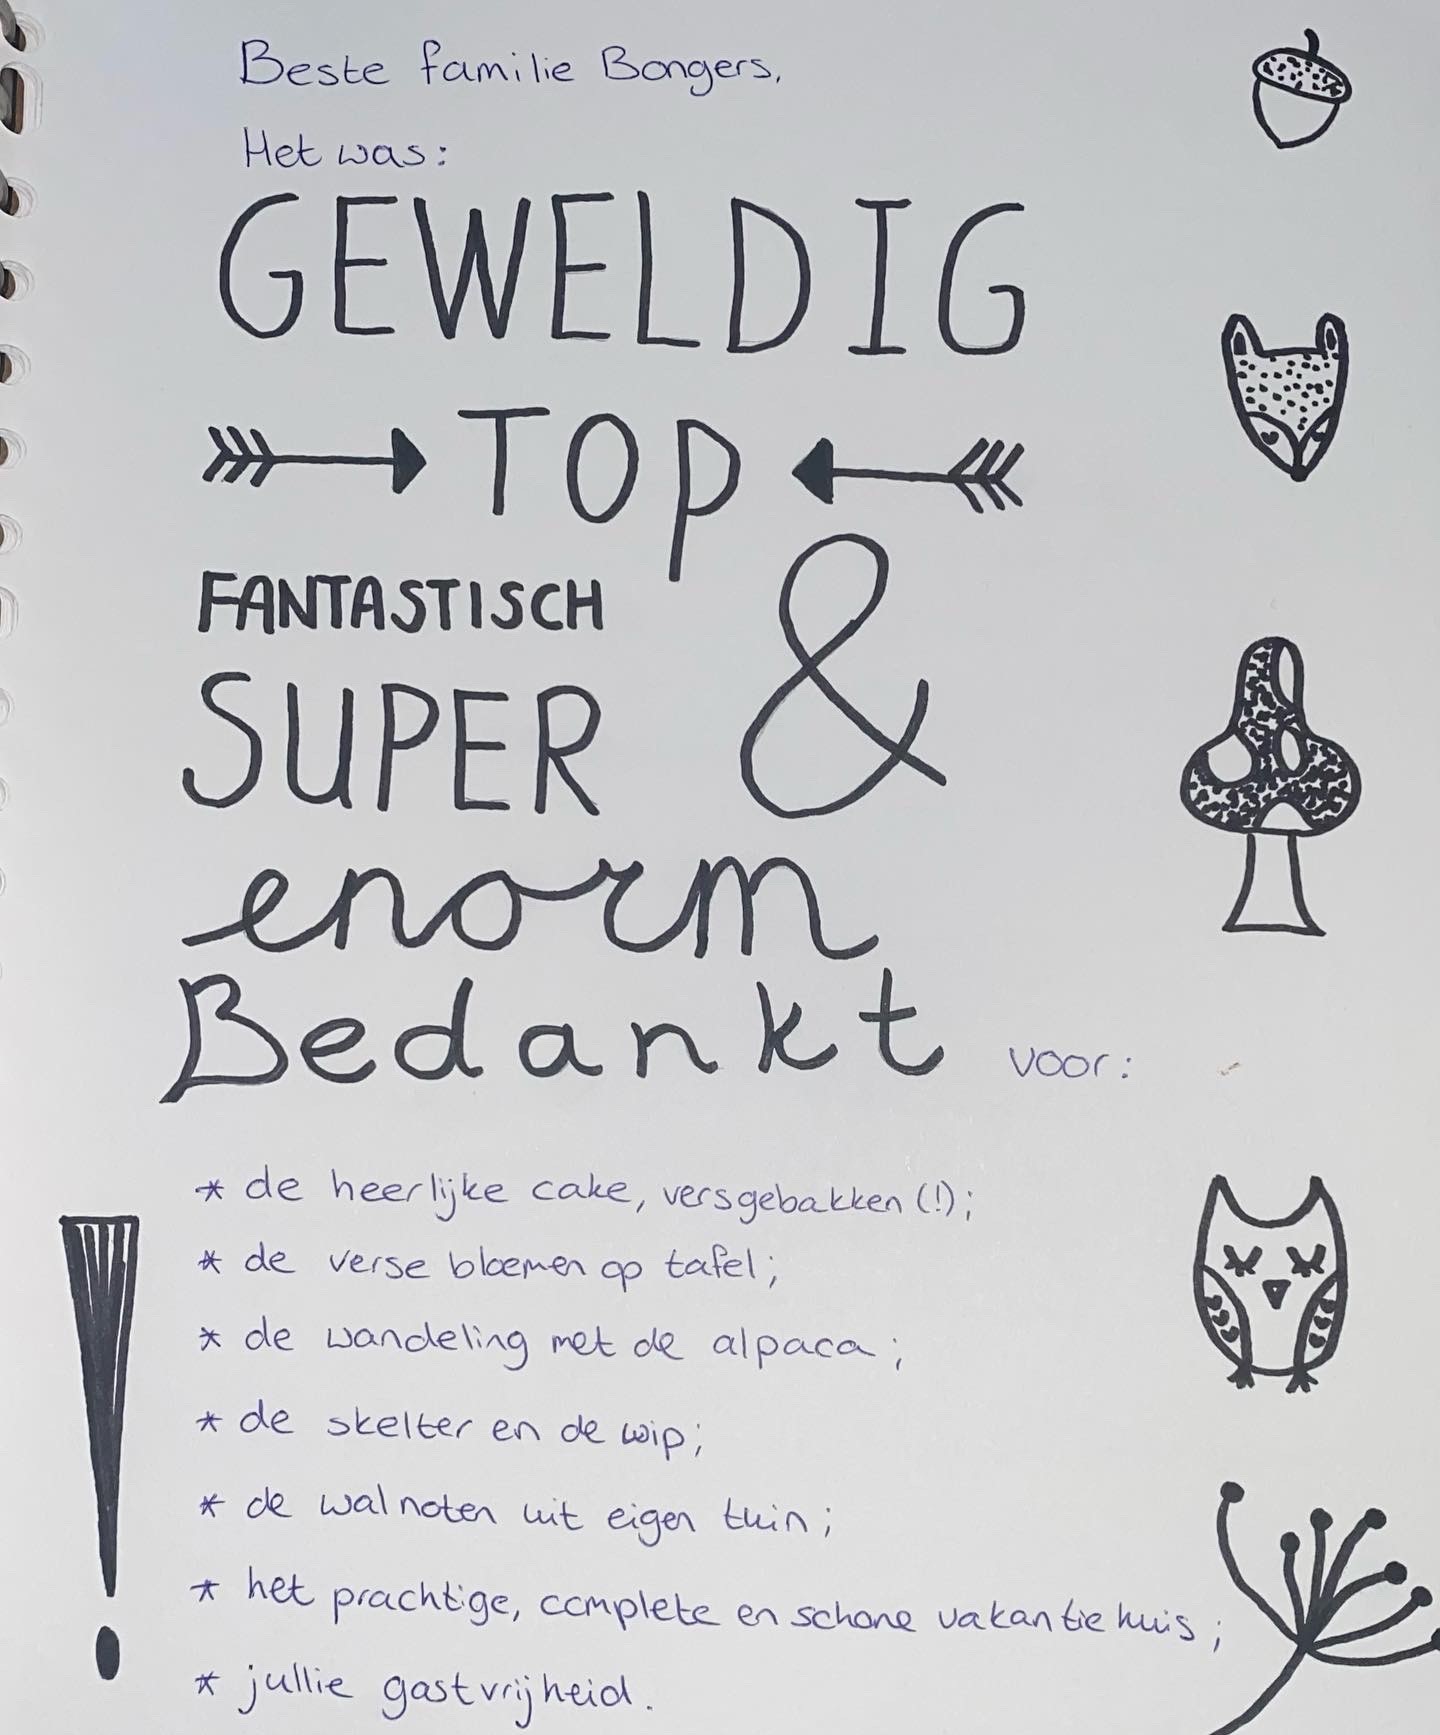 Beste familie Bongers,
Het was:
GEWELDIG
TOP
FANTASTISCH
SUPER &
enorm
Bedankt voor:
* de heerlijke cake, versgebakken (!);
* de verse bloemen op tafel;
* de wandeling met de alpaca;
* de skelter en de wip;
* de walnoten uit eigen tuin;
* het prachtige, complete en schone vakantiehuis;
* jullie gastvrijheid.
!